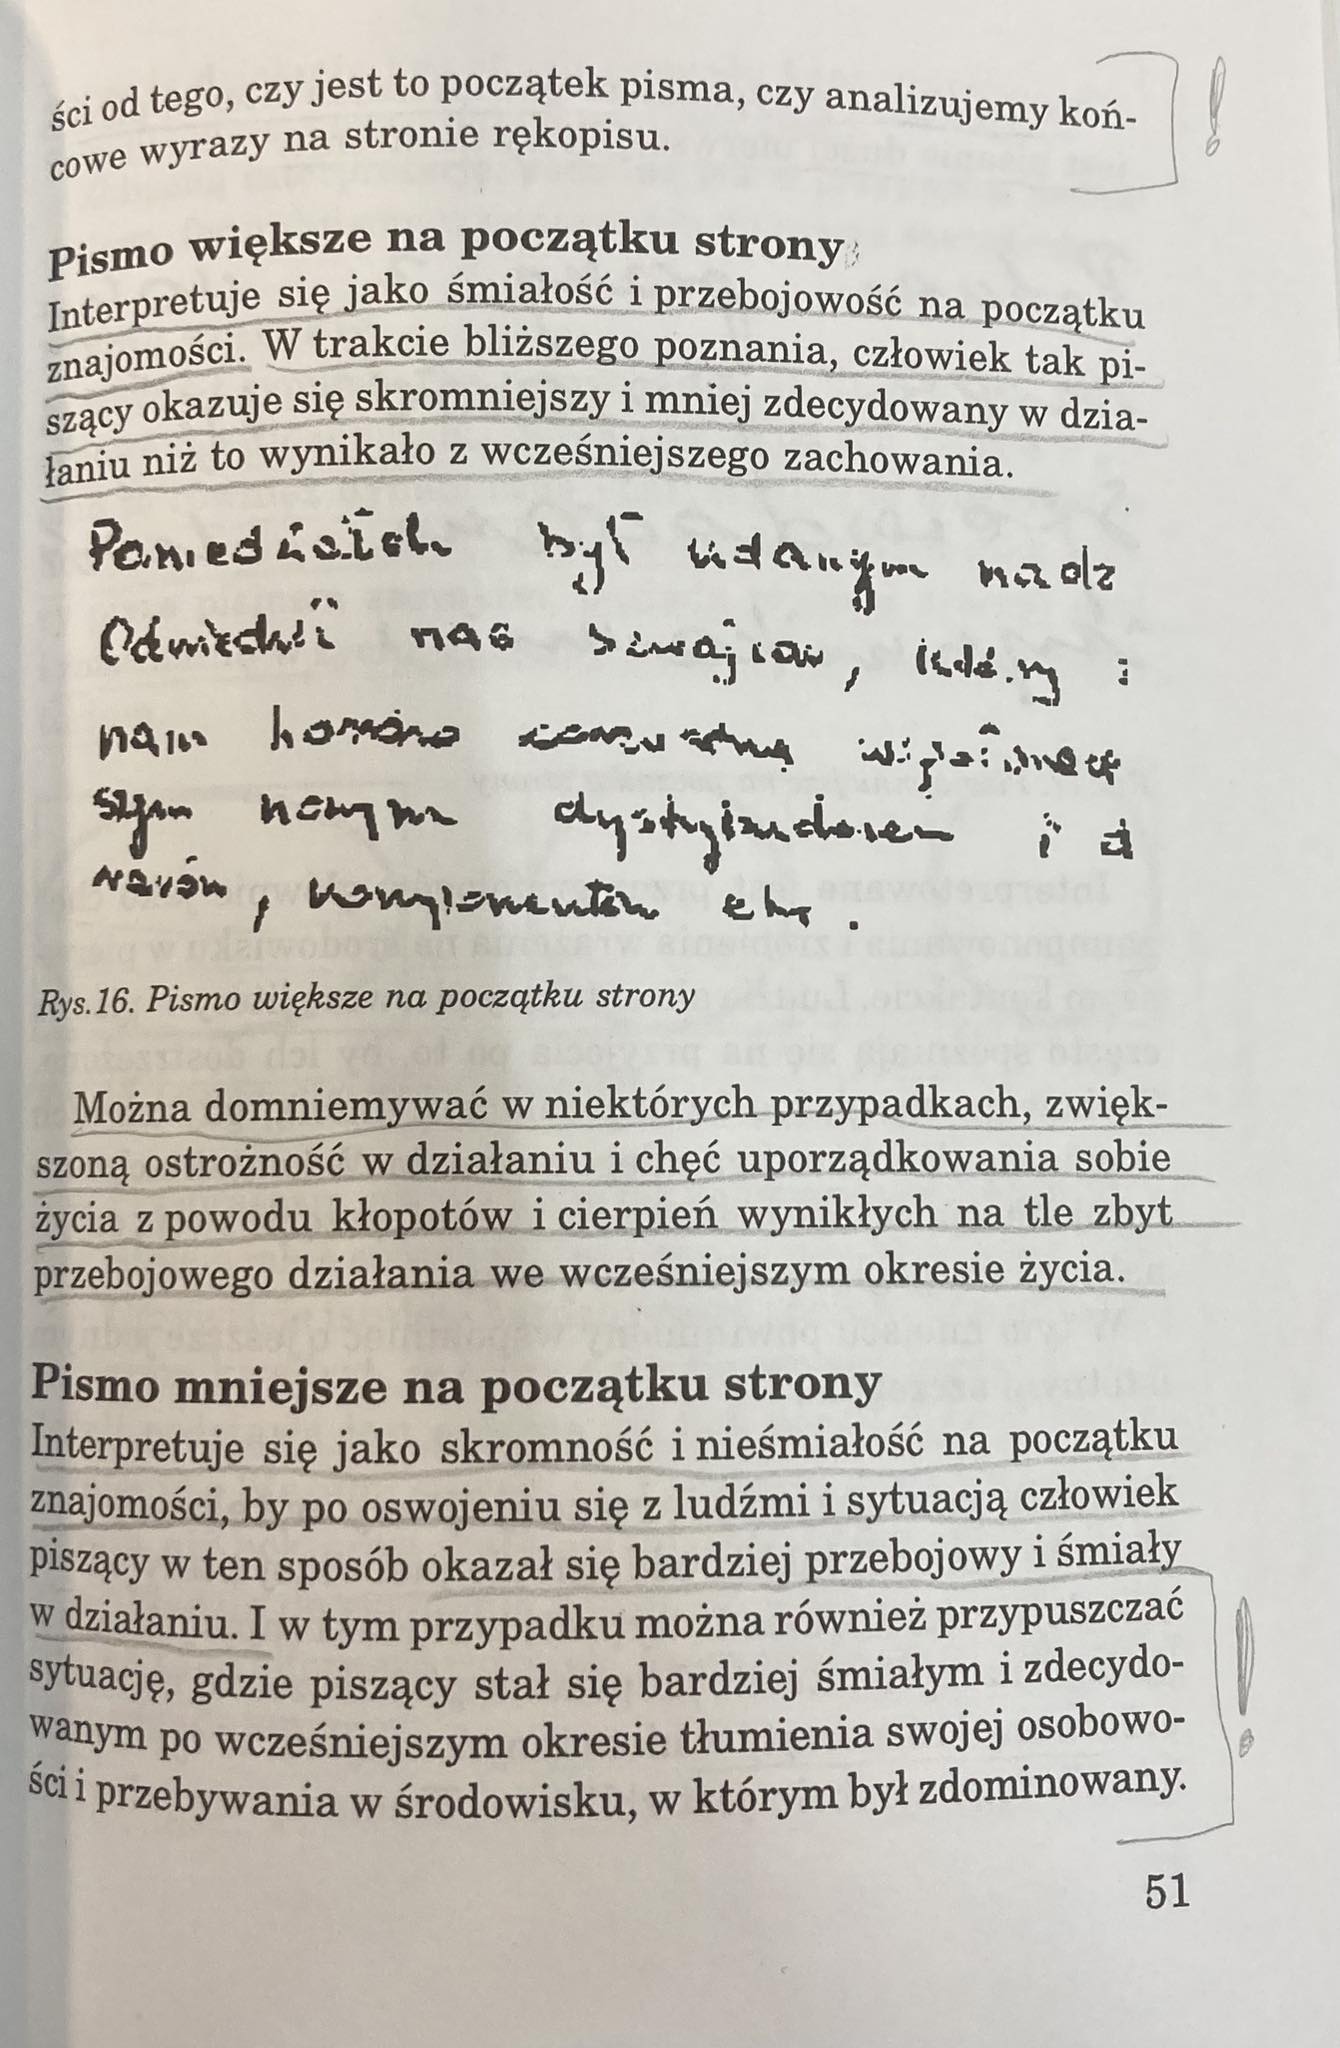 ści od tego, czy jest to początek pisma, czy analizujemy koń-
cowe wyrazy na stronie rękopisu.
Pismo większe na początku strony
Interpretuje się jako śmiałość i przebojowość na początku
znajomości. W trakcie bliższego poznania, człowiek tak pi-
szący okazuje się skromniejszy i mniej zdecydowany w dzia-
łaniu niż to wynikało z wcześniejszego zachowania.
był udanym
nas
nam
nowym i
,
Rys.16. Pismo większe na początku strony
Można domniemywać w niektórych przypadkach, zwięk-
szoną ostrożność w działaniu i chęć uporządkowania sobie
życia z powodu kłopotów i cierpień wynikłych na tle zbyt
przebojowego działania we wcześniejszym okresie życia.
Pismo mniejsze na początku strony
Interpretuje się jako skromność i nieśmiałość na początku
znajomości, by po oswojeniu się z ludźmi i sytuacją człowiek
piszący w ten sposób okazał się bardziej przebojowy i śmiały
w działaniu. I w tym przypadku można również przypuszczać
sytuację, gdzie piszący stał się bardziej śmiałym i zdecydo-
wanym po wcześniejszym okresie tłumienia swojej osobowo-
ści i przebywania w środowisku, w którym był zdominowany.
51